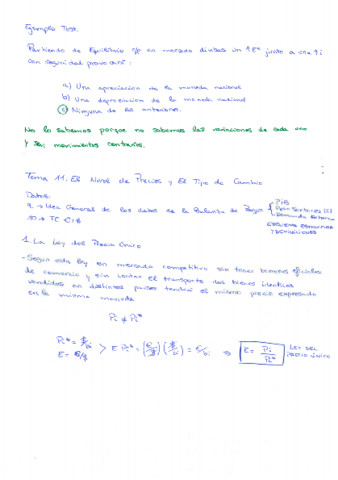 Ejemplo Test.
Partiendo de Equilibrio en mercado divisas un ↑E* junto a una ↑i
con seguridad provocará:
a) Una apreciación de la moneda nacional
b) Una depreciación de la moneda nacional
c) Ninguna de las anteriores.
No lo sabemos porque no sabemos las variaciones de cada uno
y son movimientos contrarios.
Tema 11. El Nivel de Precios y El Tipo de Cambio
Datos:
9. → Idea General de los datos de la Balanza de Pagos
PIB
Demanda Externa
10 → TC €/$
1. La Ley del Precio Único
- Según esta ley en mercado competitivo sin tener barreras oficiales
de comercio y sin contar el transporte dos bienes idénticos
vendidos en distintos países tendrá el mismo precio expresado
en la misma moneda
Pi ≠ Pi*
E = Pi / Pi*
LEY DEL
PRECIO ÚNICO